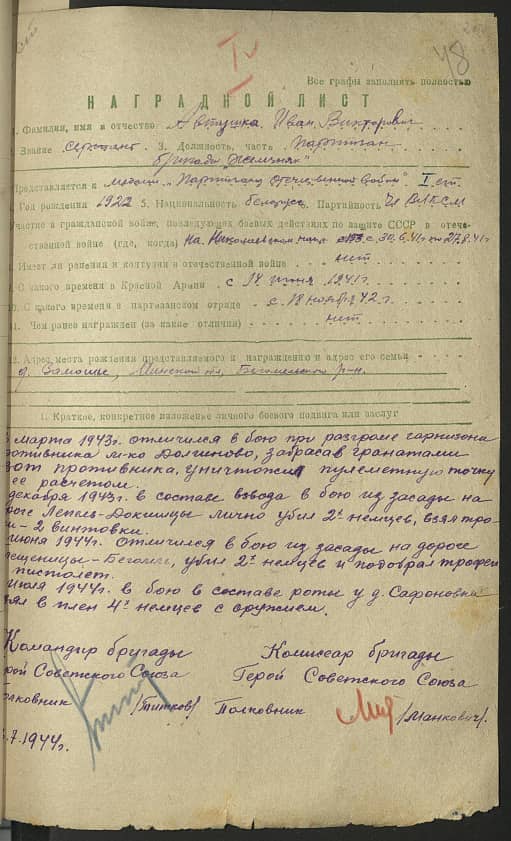 48
Все графы заполнять полностью
НАГРАДНОЙ ЛИСТ
1. Фамилия, имя и отчество Автушка Иван Викторович
2. Звание сержант 3. Должность, часть партизан
бригады "Железняк"
Представляется к медали "Партизану Отечественной войны" I ст.
4. Год рождения 1922 5. Национальность беларус 6. Партийность чл ВЛКСМ
Участие в гражданской войне, последующих боевых действиях по защите СССР в отече-
ственной войне (где, когда) на с 30.6.41г по 27.8.41г
8. Имеет ли ранения и контузии в отечественной войне нет
9. С какого времени в Красной Армии с 14 июня 1941г
10. С какого времени в партизанском отряде с 18 ноября 42 г.
11. Чем ранее награжден (за какие отличия) нет
12. Адрес места рождения представляемого к награждению и адрес его семьи
д. Замошье, Минской обл, Бегомльского р-н.
1. Краткое, конкретное изложение личного боевого подвига или заслуг
марта 1943г. отличился в бою при разгроме гарнизона
противника м-ко Долгиново, забросав гранатами
зот противника, уничтожил пулеметную точку
с ее расчетом.
декабря 1943г. в составе взвода в бою из засады на
дороге Лепель-Докшицы лично убил 2х немцев, взял тро-
феи - 2 винтовки.
июня 1944г. отличился в бою из засады на дороге
Плещеницы-Бегомль, убил 2х немцев и подобрал трофеи
пистолет.
июля 1944г. в бою в составе роты у д. Сафоновка
взял в плен 4х немцев с оружием.
Командир бригады Комиссар бригады
Герой Советского Союза Герой Советского Союза
Полковник /Титков/ Полковник /Манкович/.
.7.1944г.